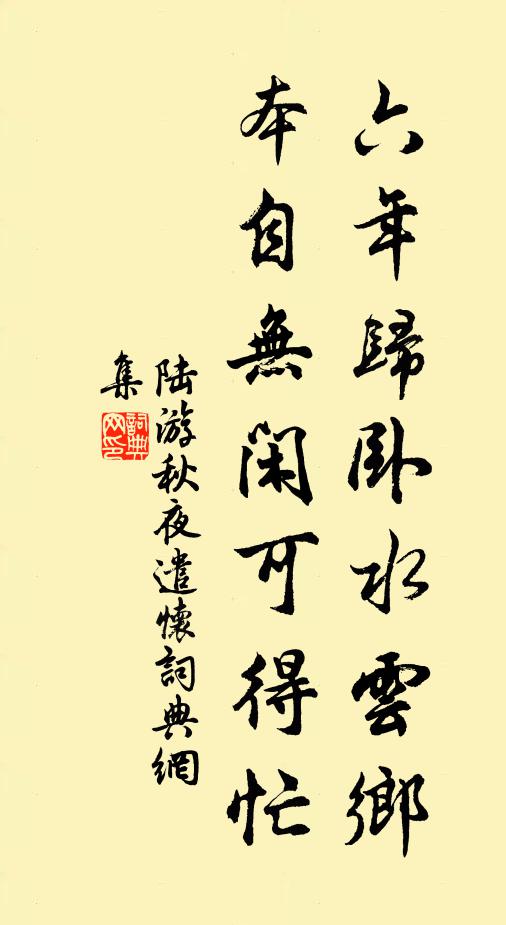 六年歸臥水雲鄉
本自無閑可得忙
陸游秋夜遣懷詞典網
集
詞典
网印